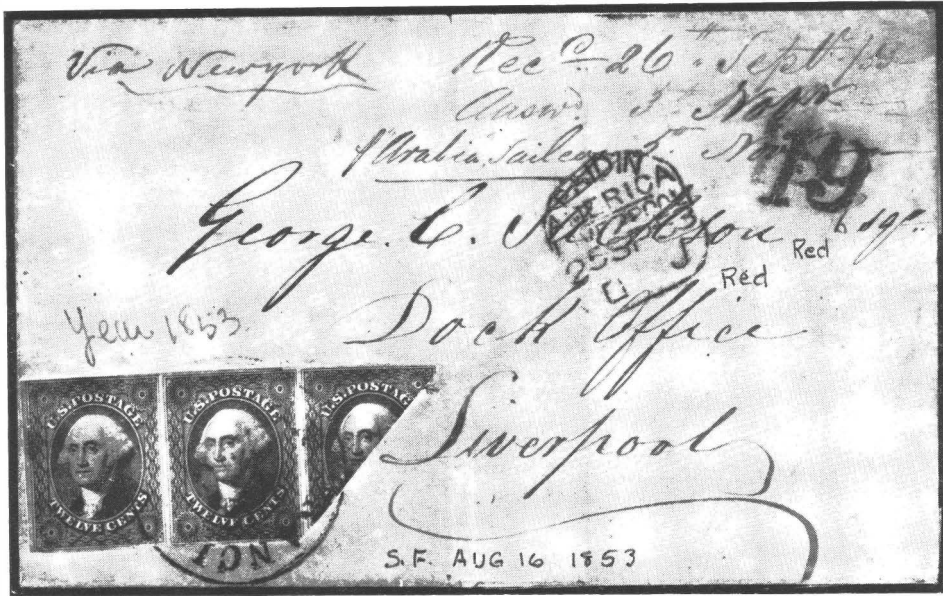 Via Newyork
Recd 26th Sept /53
Answd. 5th Novr
19
pr Arabia, Sailed 5th Novr
PAID IN
AMERICA
LIVERPOOL
25 SP 53
George. C.
Red
Red
Year 1853
Dock Office
Liverpool
U.S. POSTAGE
TWELVE CENTS
U.S. POSTAGE
TWELVE CENTS
U.S. POSTAGE
S.F. AUG 16 1853